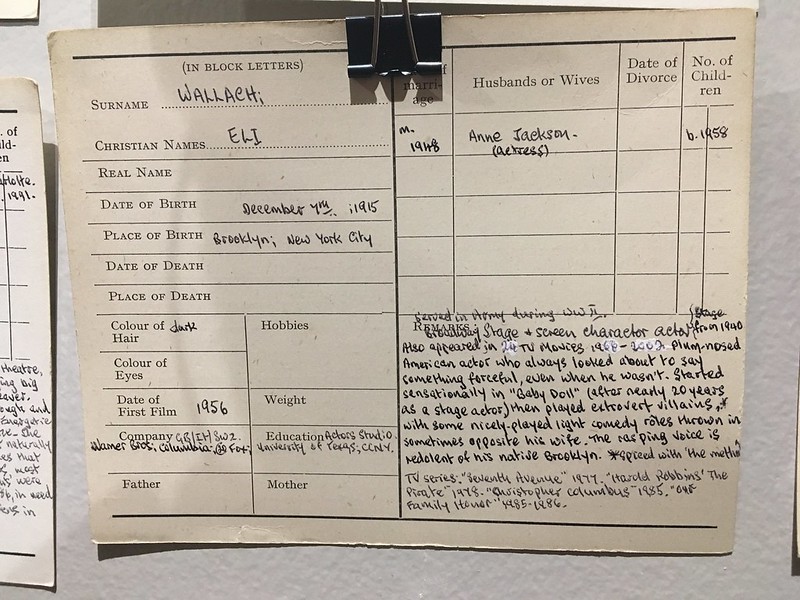 (IN BLOCK LETTERS)
SURNAME WALLACH;
CHRISTIAN NAMES ELI
REAL NAME
DATE OF BIRTH December 7TH. ;1915
PLACE OF BIRTH Brooklyn; New York City
DATE OF DEATH
PLACE OF DEATH
Colour of Hair dark
Hobbies
Colour of Eyes
Date of First Film 1956
Weight
Company
Warner Bros; Columbia; 20 Fox;
Education Actors Studio.
University of Texas; CCNY.
Father
Mother
marri-
age
Husbands or Wives
Date of
Divorce
No. of
Child-
ren
m.
1948
Anne Jackson-
(actress)
b. 1958
Served in Army during WW II.
REMARKS
Broadway Stage & screen charactor actor (Stage from 1940
Also appeared in TV Movies Plum-nosed
American actor who always looked about to say
something forceful, even when he wasn't. Started
sensationally in "Baby Doll" (after nearly 20 years
as a stage actor) then played extrovert villains,*
with some nicely-played light comedy roles thrown in
sometimes opposite his wife. The rasping voice is
redolent of his native Brooklyn. *spiced with 'the method'
TV series: "Seventh Avenue" 1977. "Harold Robbins' The
Pirate" 1978. "Christopher Columbus" 1985. "Our
Family Honor" 1985-1986.
of
ild-
en
1991.
theatre,
big
and
She
naturally
that
most
were
in need
in